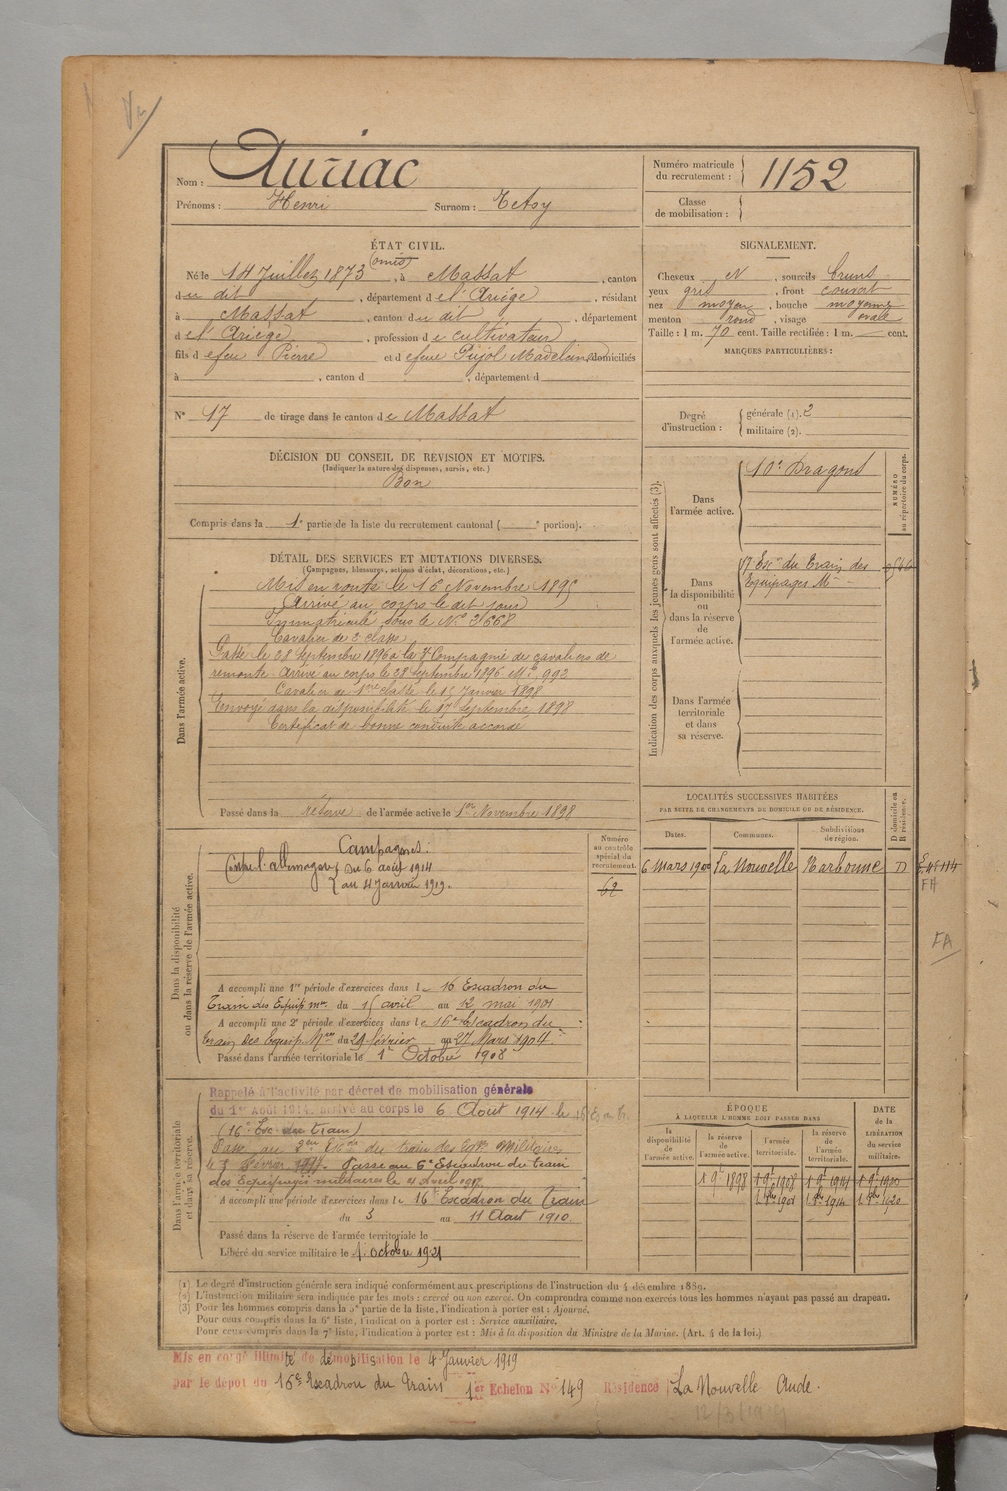 Nom : Auriac
Prénoms : Henri Surnom : Tetsy
Numéro matricule du recrutement : 1152
Classe de mobilisation :
ÉTAT CIVIL.
(omis)
Né le 14 Juillet 1873, à Massat, canton
du dit, département de l'Ariège, résidant
à Massat, canton du dit, département
de l'Ariège, profession de cultivateur
fils de feu Pierre et de feue Pujol Madeleine domiciliés
à , canton d , département d
N° 17 de tirage dans le canton de Massat
DÉCISION DU CONSEIL DE REVISION ET MOTIFS.
(Indiquer la nature des dispenses, sursis, etc.)
Bon
Compris dans la 1e partie de la liste du recrutement cantonal ( e portion).
SIGNALEMENT.
Cheveux N, sourcils bruns
yeux gris, front couvert
nez moyen, bouche moyenne
menton rond, visage ovale
Taille : 1 m. 70 cent. Taille rectifiée : 1 m. — cent.
MARQUES PARTICULIÈRES :
Degré d'instruction : générale (1). 2
militaire (2).
Indication des corps auxquels les jeunes gens sont affectés (3).
NUMÉRO au répertoire du corps.
Dans l'armée active. 10e Dragons
Dans la disponibilité ou dans la réserve de l'armée active. 17 Esc.on du Train des
Equipages M.
Dans l'armée territoriale et dans sa réserve.
DÉTAIL DES SERVICES ET MUTATIONS DIVERSES.
(Campagnes, blessures, actions d'éclat, décorations, etc.)
Dans l'armée active.
Mis en route le 16 Novembre 1895
Arrivé au corps le dit jour
Immatriculé sous le N° 3668
Cavalier de 2 classe
Passé le 28 Septembre 1896 à la 7e Compagnie de cavaliers de
remonte. Arrivé au corps le 28 septembre 1896 Mle 992
Cavalier de 1ère classe le 15 Janvier 1898
Envoyé dans la disponibilité le 17 Septembre 1898
Certificat de bonne conduite accordé
Passé dans la réserve de l'armée active le 1er Novembre 1898
Dans la disponibilité ou dans la réserve de l'armée active.
Numéro au contrôle spécial du recrutement.
62
Campagnes.
Contre l'allemagne du 6 août 1914
au 4 Janvier 1919.
A accompli une 1re période d'exercices dans le 16 Escadron du
Train des Equip. mres du 15 avril au 12 mai 1901
A accompli une 2e période d'exercices dans le 16e Escadron du
Train des Equip. Mres du 29 février au 27 Mars 1904.
Passé dans l'armée territoriale le 1er Octobre 1908
LOCALITÉS SUCCESSIVES HABITÉES
PAR SUITE DE CHANGEMENTS DE DOMICILE OU DE RÉSIDENCE.
Dates. Communes. Subdivisions de région. D domicile ou R résidence.
6 mars 1900 La Nouvelle Narbonne D
FA
FA
Dans l'armée territoriale et dans sa réserve.
Rappelé à l'activité par décret de mobilisation générale
du 1er Août 1914. arrivé au corps le 6 Août 1914
(16e Esc. du train)
le 1 Février 1917. Passé au 6e Escadron du train
des Equipages militaires le 4 Avril 1917
A accompli une période d'exercices dans le 16e Escadron du Train
du 3 au 11 Août 1910.
Passé dans la réserve de l'armée territoriale le
Libéré du service militaire le 1 octobre 1921
ÉPOQUE
À LAQUELLE L'HOMME DOIT PASSER DANS
la disponibilité de l'armée active. la réserve de l'armée active. l'armée territoriale. la réserve de l'armée territoriale. DATE de la LIBÉRATION du service militaire.
1 9bre 1898 1 9bre 1908 1 9bre 1914
(1) Le degré d'instruction générale sera indiqué conformément aux prescriptions de l'instruction du 4 décembre 1889.
(2) L'instruction militaire sera indiquée par les mots : exercé ou non exercé. On comprendra comme non exercés tous les hommes n'ayant pas passé au drapeau.
(3) Pour les hommes compris dans la 5e partie de la liste, l'indication à porter est : Ajourné.
Pour ceux compris dans la 6e liste, l'indication à porter est : Service auxiliaire.
Pour ceux compris dans la 7e liste, l'indication à porter est : Mis à la disposition du Ministre de la Marine. (Art. 4 de la loi.)
Mis en congé illimité de démobilisation le 4 Janvier 1919
par le dépôt du 16e Escadron du Train 1er Echelon N° 149 Résidence La Nouvelle Aude.